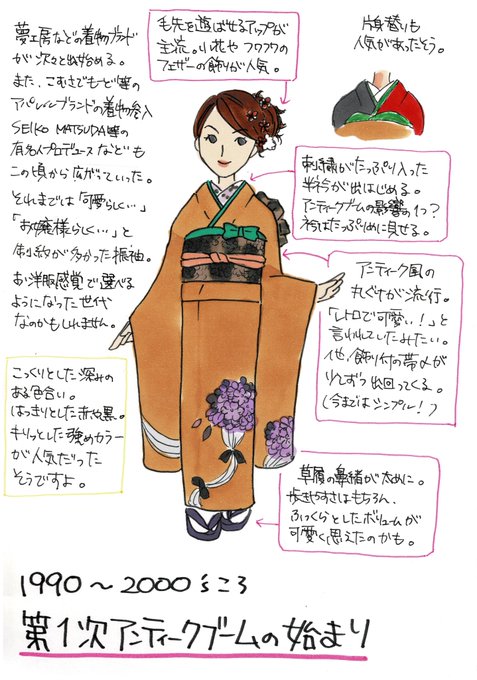 夢工房などの着物ブランド
が次々と出始める。
また、こむさでもど等の
アパレルブランドの着物参入
SEIKO MATSUDA等の
有名人プロデュースなども
この頃から広がっていった。
それまでは「可愛らしく…」
「お嬢様らしく…」と
制約が多かった振袖。
お洋服感覚で選べる
ようになった世代
なのかもしれません。
毛先を遊ばせるアップが
主流。小花や フワフワの
フェザーの飾りが人気。
片身替りも
人気があったそう。
刺繍がたっぷり入った
半衿が出はじめる。
アンティークブームの影響の1つ?
衿はたっぷりめに見せる。
アンティーク風の
丸ぐけが流行。
「レトロで可愛い!」と
言われていたみたい。
他、飾り付の帯〆が
少しずつ出回ってくる。
(今まではシンプル!)
こっくりとした深みの
ある色合い。
はっきりとした赤や黒。
キリッとした強めカラー
が人気だった
そうですよ。
草履の鼻緒が太めに。
歩きやすさはもちろん、
ふっくらとしたボリュームが
可愛く思えたのかも。
1990～2000'sころ
第1次アンティークブームの始まり